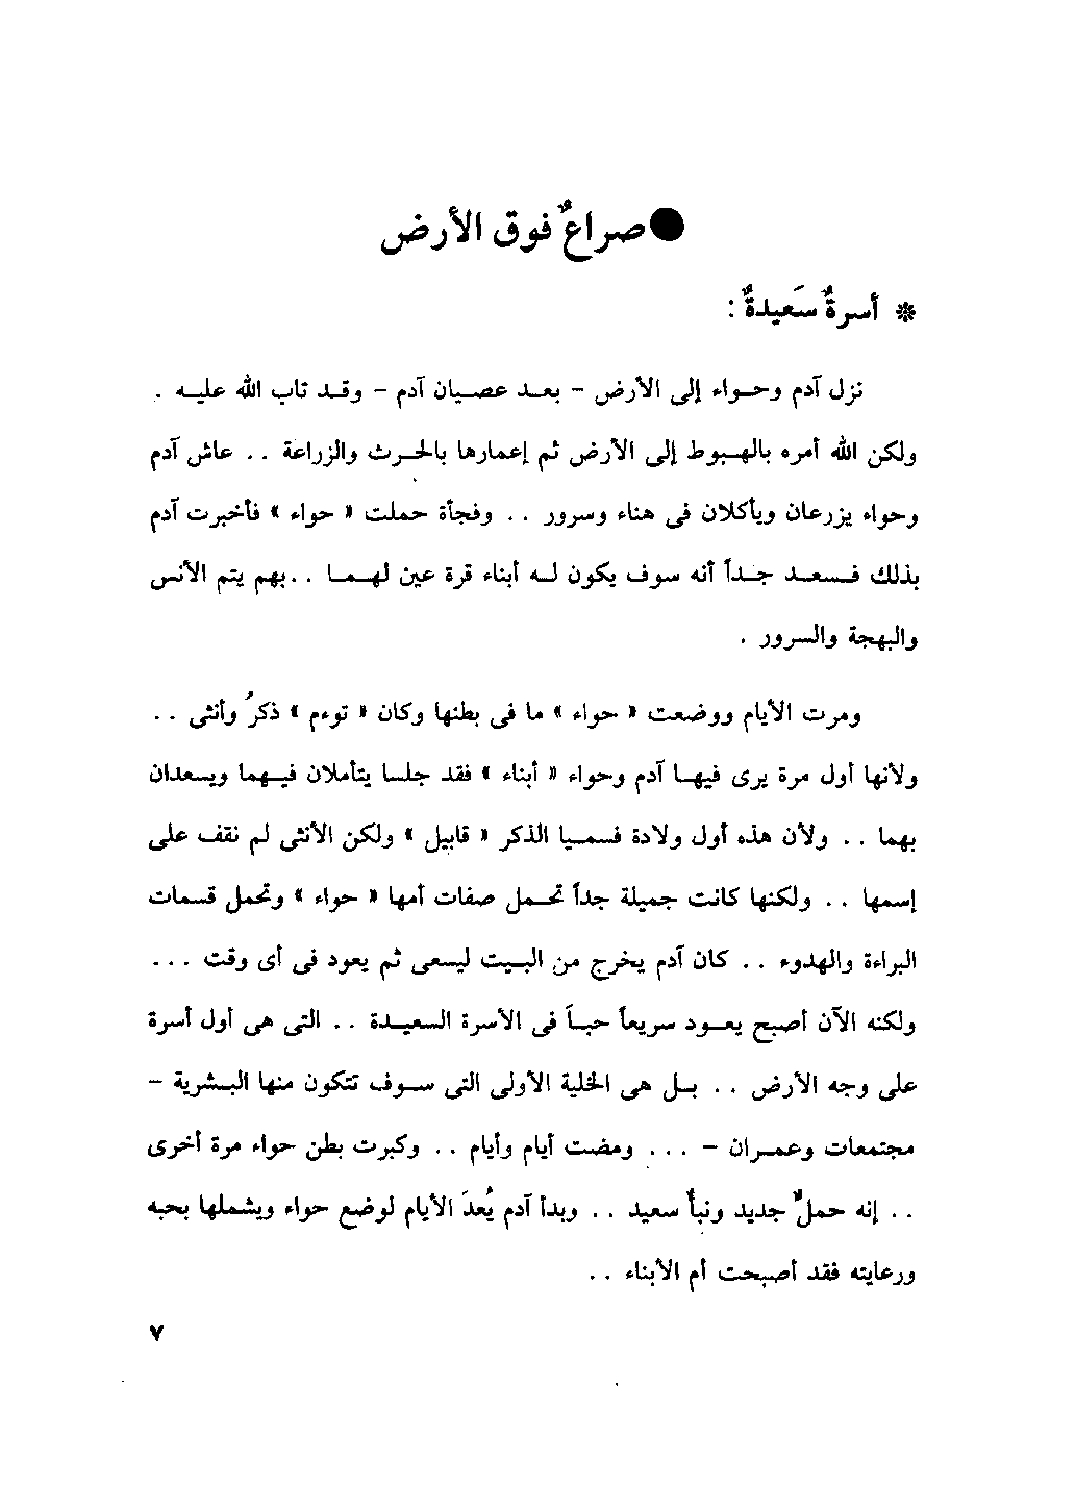 ● صراعٌ فوق الأرض
* أسرةٌ سَعيدةٌ :
نزل آدم وحواء إلى الأرض - بعد عصيان آدم - وقد تاب الله عليه .
ولكن الله أمره بالهبوط إلى الأرض ثم إعمارها بالحرث والزراعة . . عاش آدم
وحواء يزرعان ويأكلان فى هناء وسرور . . وفجأة حملت « حواء » فأخبرت آدم
بذلك فسعد جداً أنه سوف يكون له أبناء قرة عين لهما . . بهم يتم الأنس
والبهجة والسرور .
ومرت الأيام ووضعت « حواء » ما فى بطنها وكان « توءم » ذكرُ وأنثى . .
ولأنها أول مرة يرى فيها آدم وحواء « أبناء » فقد جلسا يتأملان فيهما ويسعدان
بهما . . ولأن هذه أول ولادة فسميا الذكر « قابيل » ولكن الأنثى لم نقف على
إسمها . . ولكنها كانت جميلة جداً تحمل صفات أمها « حواء » وتحمل قسمات
البراءة والهدوء . . كان آدم يخرج من البيت ليسعى ثم يعود فى أى وقت . . .
ولكنه الآن أصبح يعود سريعاً حباً فى الأسرة السعيدة . . التى هى أول أسرة
على وجه الأرض . . بل هى الخلية الأولى التى سوف تتكون منها البشرية -
مجتمعات وعمران - . . . ومضت أيام وأيام . . وكبرت بطن حواء مرة أخرى
. . إنه حملٌ جديد ونبأ سعيد . . وبدأ آدم يُعدَ الأيام لوضع حواء ويشملها بحبه
ورعايته فقد أصبحت أم الأبناء . .
٧